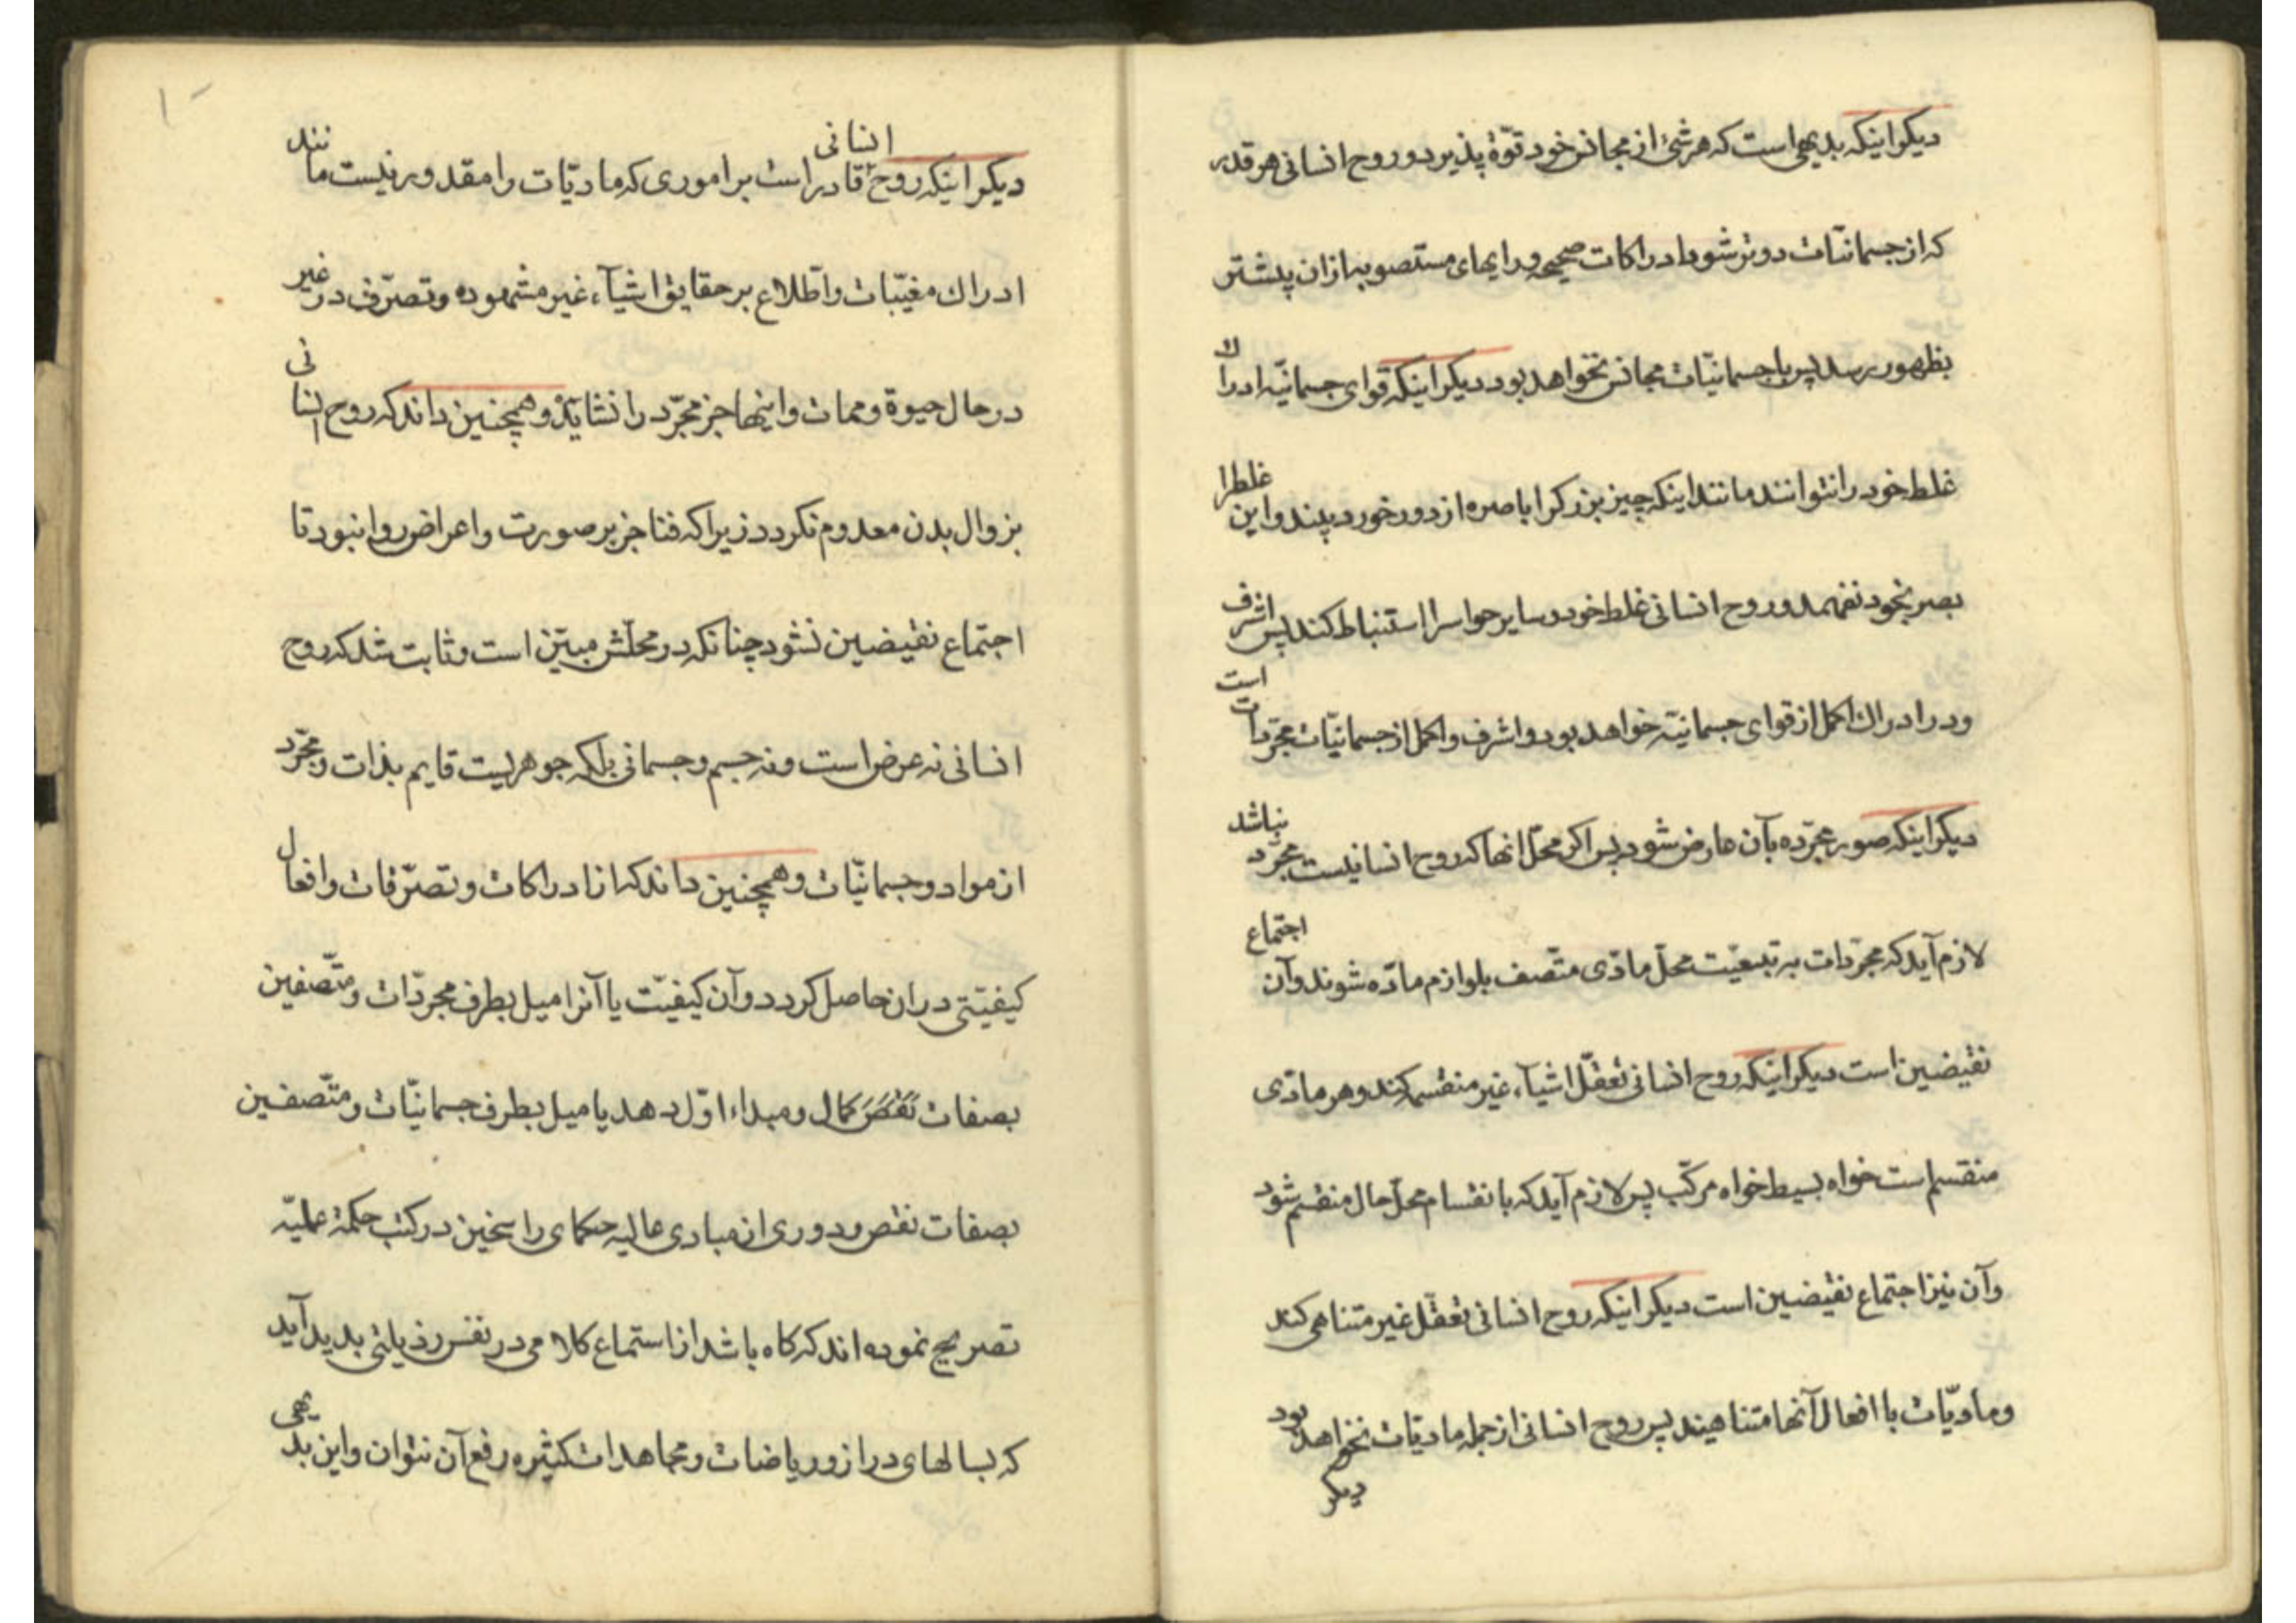 دیکر اینکه بدیهی است که هر شئ از مجانس خود قوّة پذیرد و روح انسانی هر قدر
که از جسمانیّات دورتر شود ادراکات صحیحه و رایهای مستصوبه ازان پیشتر
بظهور رسد پس با جسمانیّات مجانس نخواهد بود دیکر اینکه قوای جسمانیّه ادراک
غلط خود را نتوانند مانند اینکه چیز بزرک را باصره از دور خورد بیند و این غلط را
بصر بخود نفهمد و روح انسانی غلط خود و سایر حواس را استنباط کند پس اشرف
و در ادراک اکمل از قوای جسمانیّه خواهد بود و اشرف و اکمل از جسمانیّات مجرّدات است
دیکر اینکه صور مجرّده بآن عارض شود پس اکر محلّ انها که روح انسانیست مجرّد نباشد
لازم آید که مجرّدات به تبعیّت محلّ مادّی متّصف بلوازم مادّه شوند و آن اجتماع
نقیضین است دیکر اینکه روح انسانی تعقّل اشیآء غیر منقسم کند و هر مادّی
منقسم است خواه بسیط خواه مرکّب پس لازم آید که بانقسام محلّ حال منقسم شود
و آن نیز اجتماع نقیضین است دیکر اینکه روح انسانی تعقّل غیر متناهی کند
و مادیّات با افعال آنها متناهیند پس روح انسانی از جمله مادیّات نخواهد بود
دیکر
دیکر اینکه روح انسانی قادر است بر اموری که مادیّات را مقدور نیست مانند
ادراک مغیّبات و اطّلاع بر حقایق اشیآء غیر مشهوده و تصرّف در غیر
در حال حیوة و ممات و اینها جز مجرّد را نشاید و همچنین داند که روح انسانی
بزوال بدن معدوم نکردد زیرا که فنا جز بر صورت و اعراض روا نبود تا
اجتماع نقیضین نشود چنانکه در محلّش مبیّن است و ثابت شد که روح
انسانی نه عرض است و نه جسم و جسمانی بلکه جوهریست قایم بذات و مجرّد
از مواد و جسمانیّات و همچنین داند که از ادراکات و تصرّفات و افعال
کیفیّتی دران حاصل کردد و آن کیفیّت یا آنرا میل بطرف مجرّدات و متّصفین
بصفات نقص کمال و مبداء اوّل دهد یا میل بطرف جسمانیّات و متّصفین
بصفات نقص و دوری از مبادی عالیه حکمای راسخین در کتب حکمة عملیّه
تصریح نموده اند که کاه باشد از استماع کلامی در نفس رذیلتی بدید آید
که بسالهای دراز و ریاضات و مجاهدات کثیره رفع آن نتوان و این بدیهی